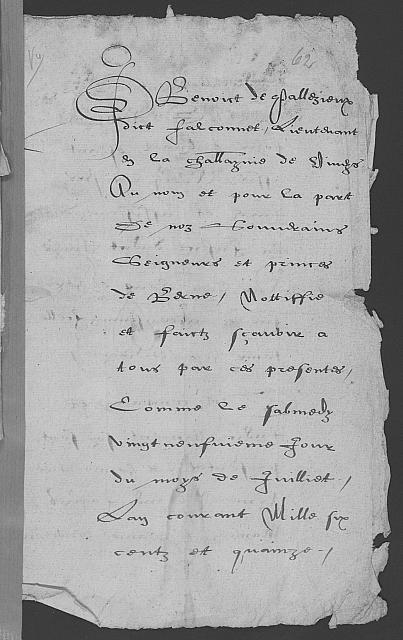 62
Je Benoict de Pallezieux
dict Falconnet, Lieutenant
en la de
Au nom et pour la part
De noz Souverains
Seigneurs et princes
de Berne, Nottiffie
et faictz sçavoir a
tous par ces presentes,
Comme le sabmedy
vingtneufvieme Jour
du moys de Juilliet,
Lan courant Mille six
centz et quainze,